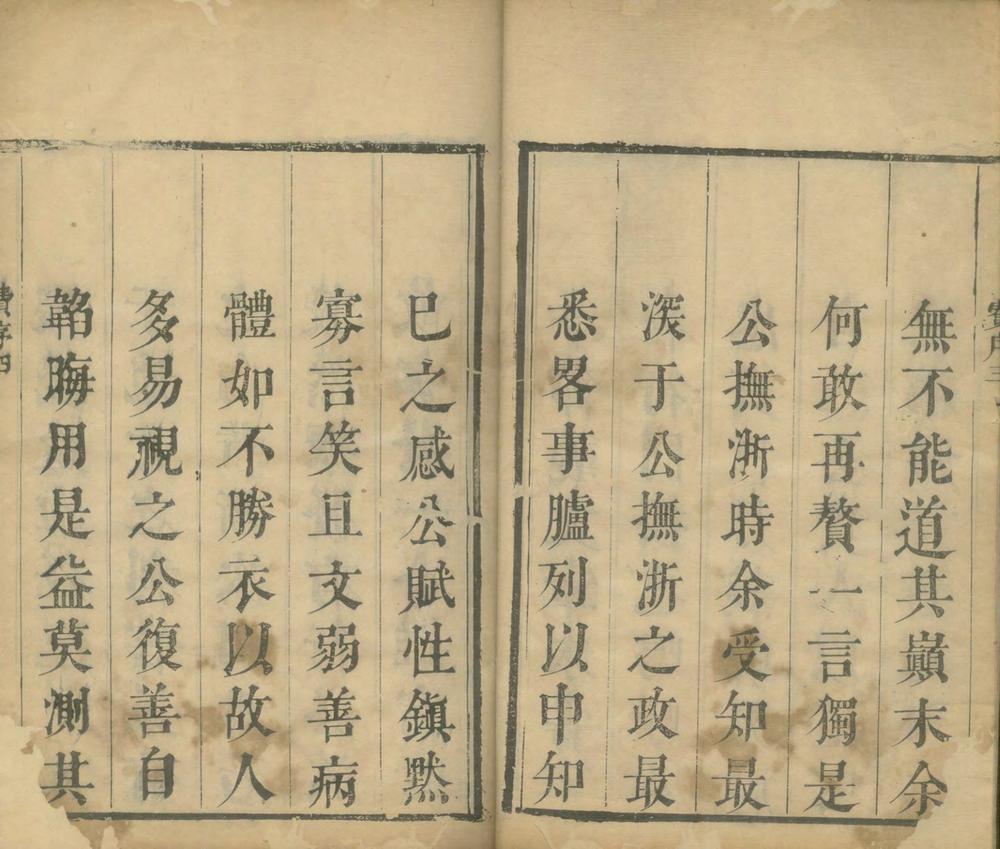 無不能道其巔末余
何敢再贅一言獨是
公撫浙時余受知最
深于公撫浙之政最
悉畧事臚列以申知
已之感公賦性鎮黙
寡言笑且文弱善病
體如不勝衣以故人
多易視之公復善自
韜晦用是益莫測其
序四